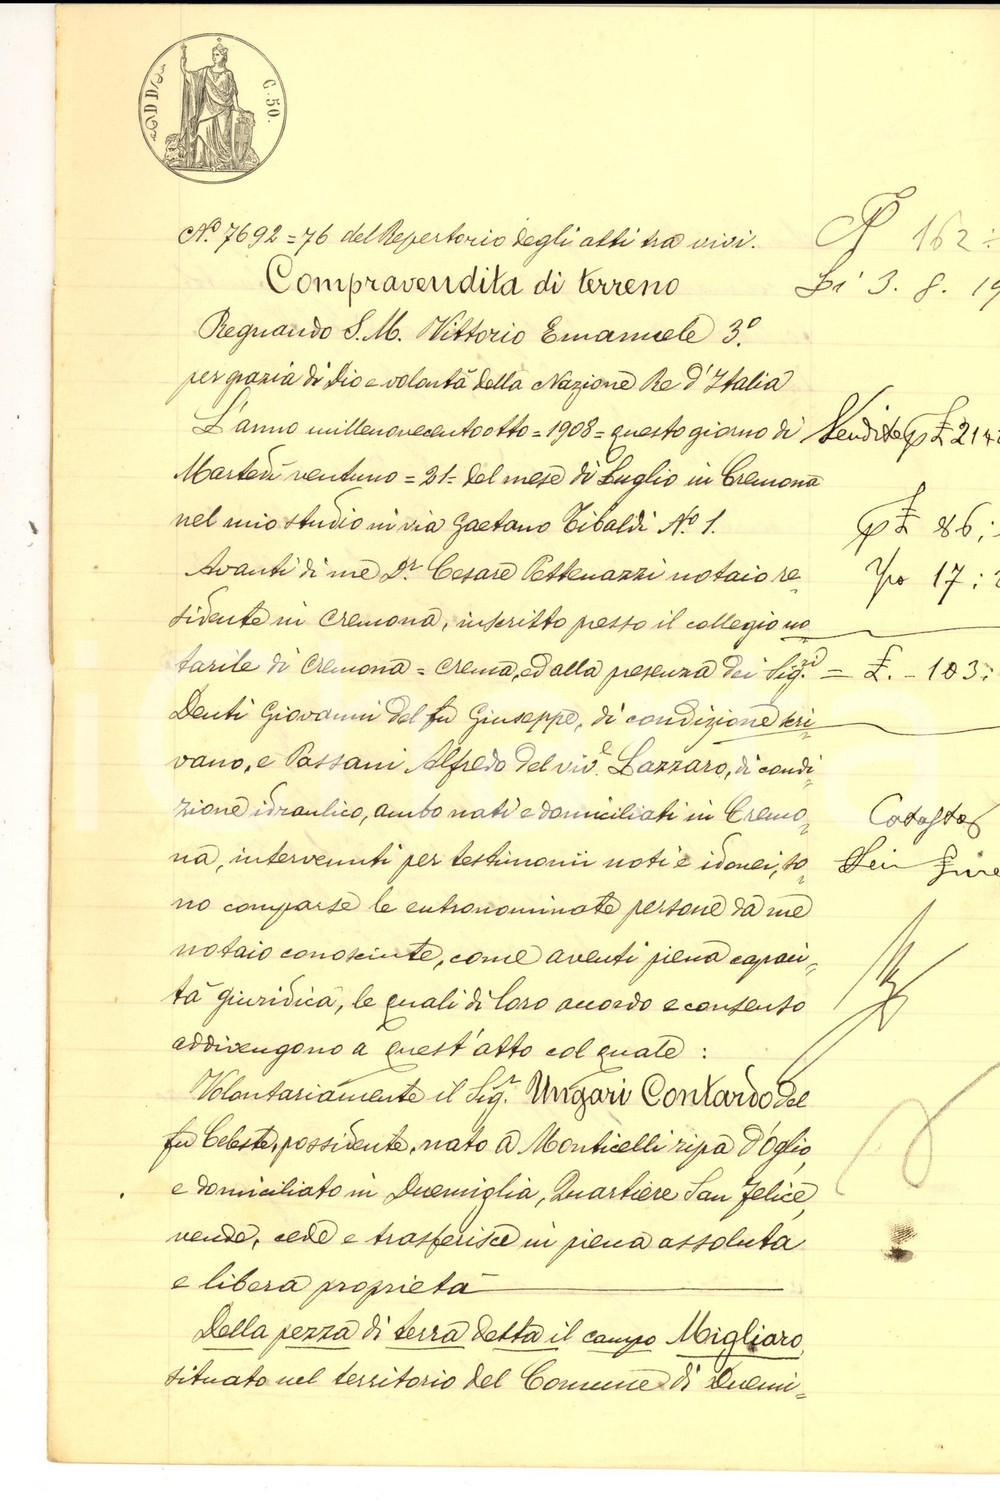 C. 50.
N.º 7692=76 del Repertorio degli atti tra vivi.
Compravendita di terreno
Regnando S. M. Vittorio Emanuele 3.º
per grazia di Dio e volontà della Nazione Re d'Italia
L'anno millenovecentootto=1908=questo giorno di
Martedì ventuno=21=del mese di Luglio in Cremona
nel mio studio in via Gaetano Tibaldi N.º 1.
Avanti di me D.r Cesare Pettenazzi notaio re-
sidente in Cremona, inscritto presso il collegio no
tarile di Cremona=Crema, ed alla presenza dei Sig.ri
Denti Giovanni del fu Giuseppe, di condizione scri-
vano, e Passani Alfredo del viv.e Lazzaro, di condi-
zione idraulico, ambo nati e domiciliati in Cremo-
na, intervenuti per testimonii noti e idonei, so-
no comparse le entronominate persone da me
notaio conosciute, come aventi piena capaci-
tà giuridica, le quali di loro accordo e consenso
addivengono a quest'atto col quale:
Volontariamente il Sig.r Ungari Contardo del
fu Celeste, possidente, nato a Monticelli ripa d'Oglio,
e domiciliato in Duemiglia, Quartiere San Felice,
vende, cede e trasferisce in piena assoluta
e libera proprietà
Della pezza di terra detta il campo Migliaro,
situato nel territorio del Comune di Duemi-
162:
Lì 3. 8. 19
Vendite £ 214
£ 86:
17:
= £. - 103:
Catasto